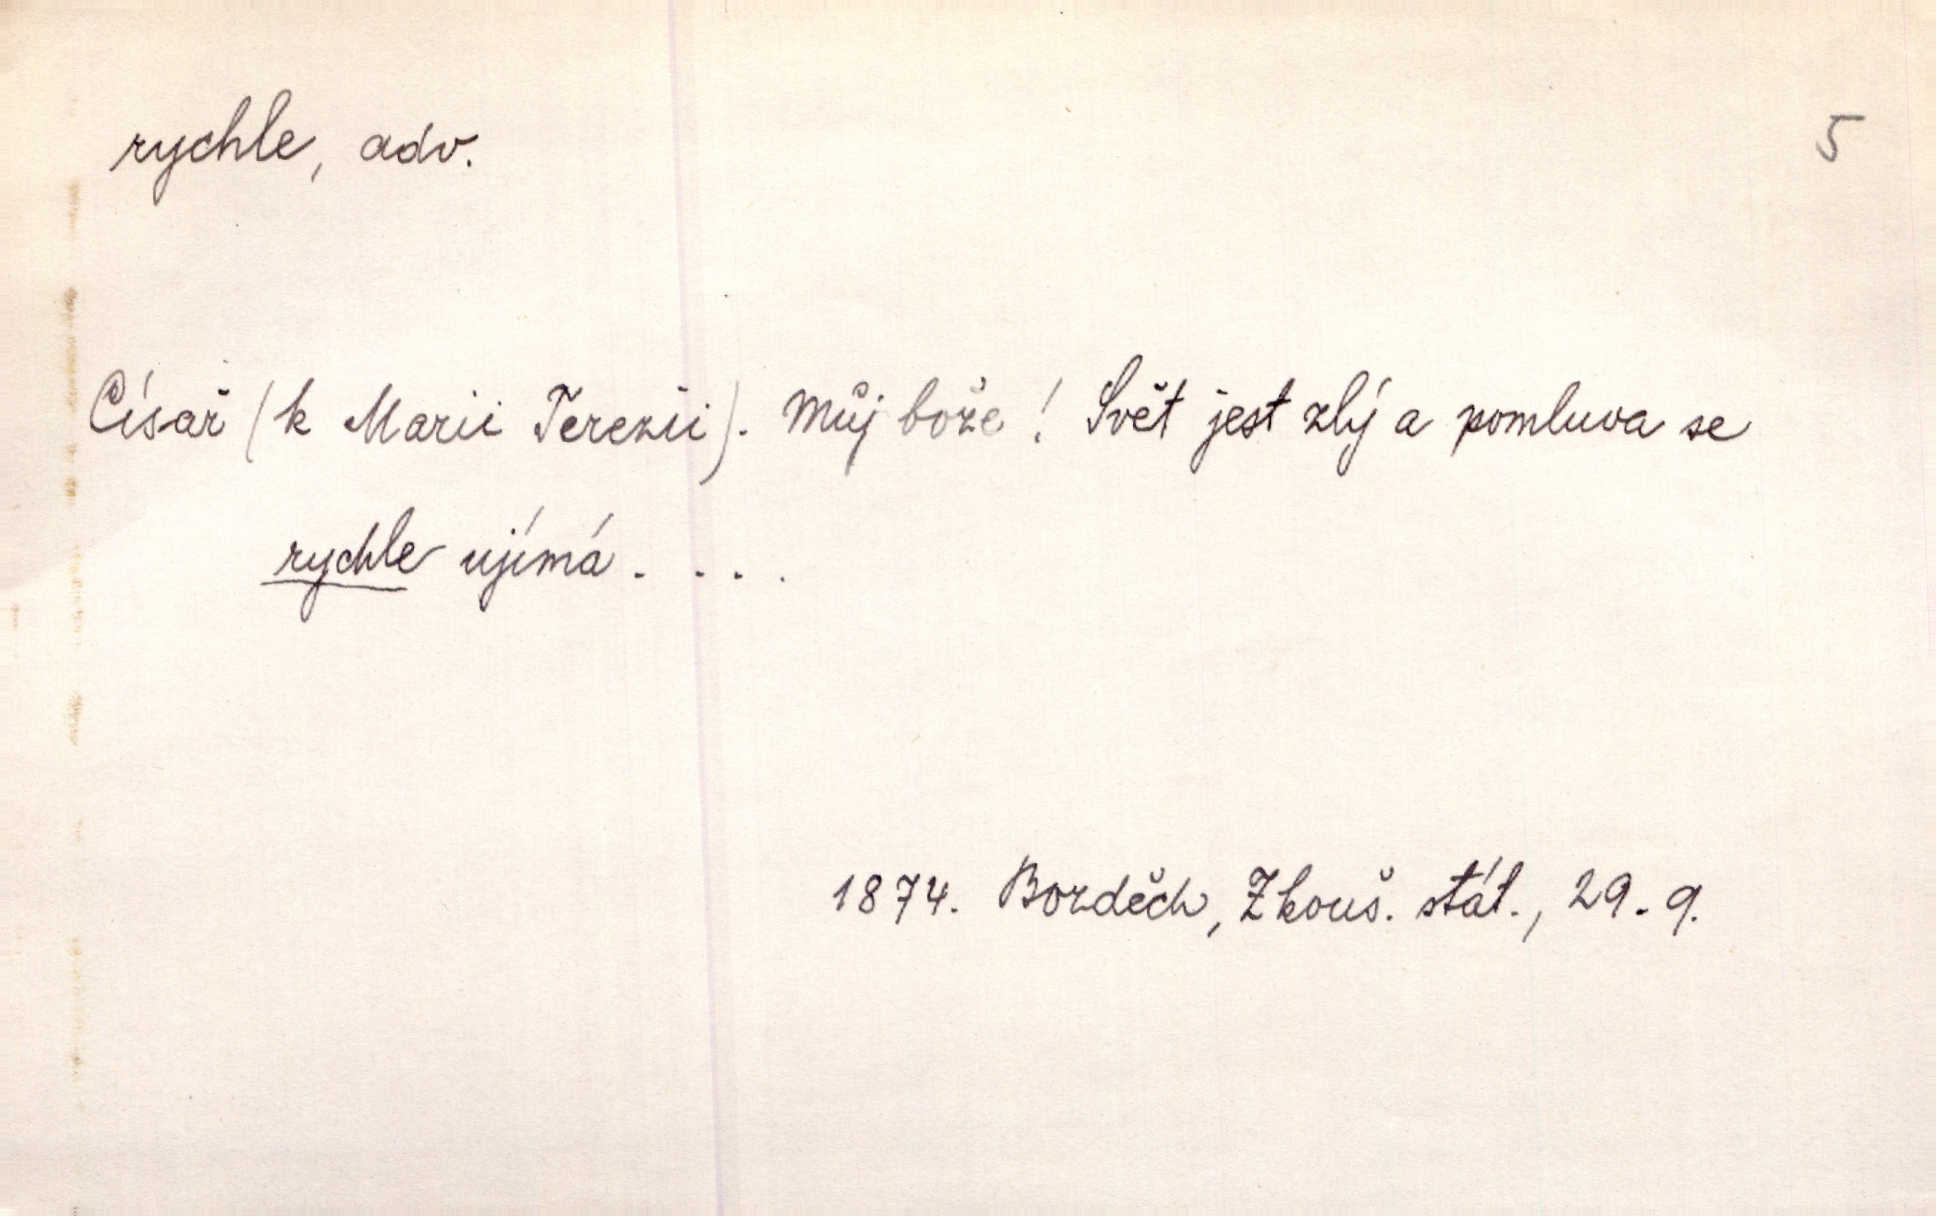 rychle, adv.
5
Císař (k Marii Terezii). Můj bože! Svět jest zlý a pomluva se
rychle ujímá. . . .
1874. Bozděch, Zkouš. stát., 29. 9.